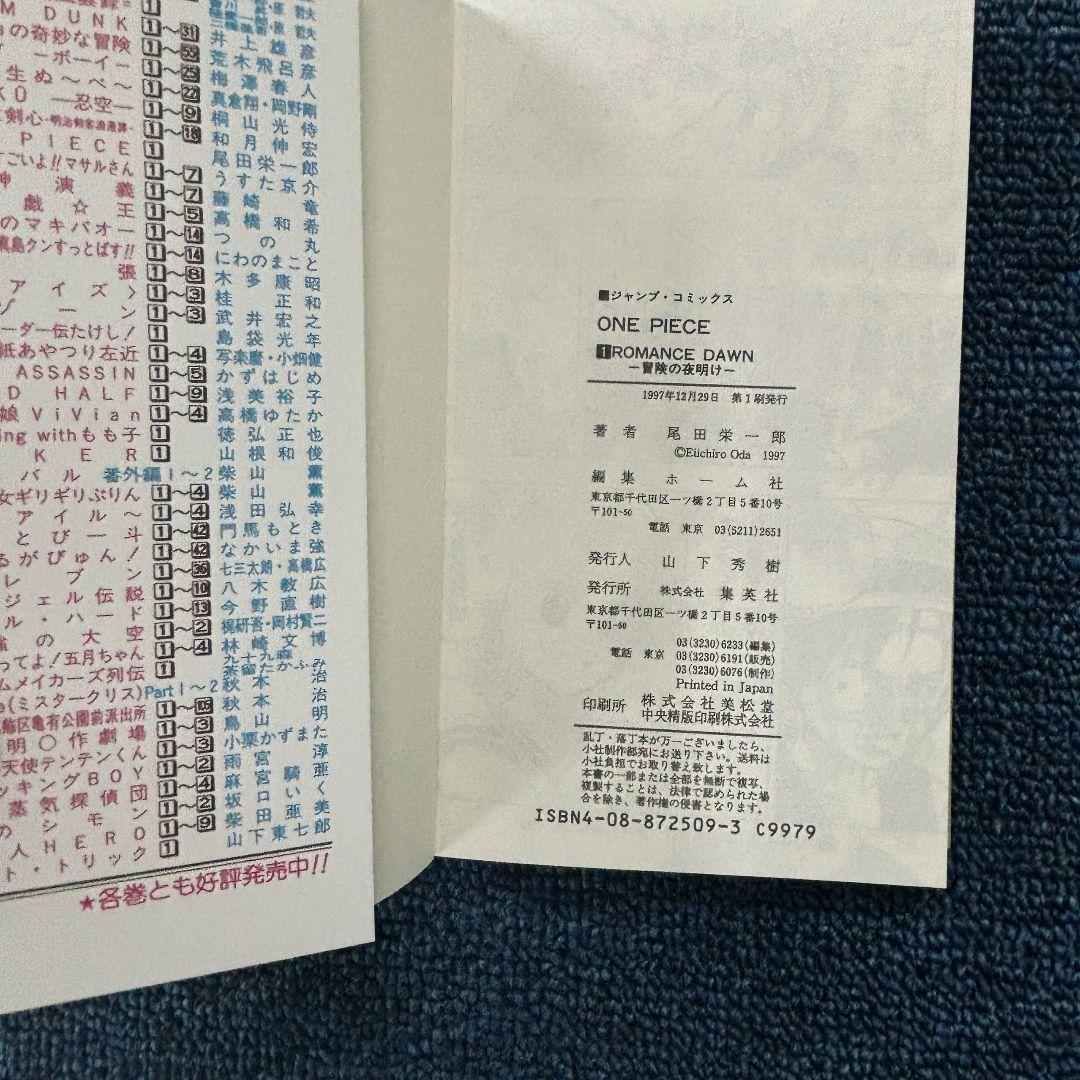 M DUNK 1～31 井上雄彦
の奇妙な冒険 荒木飛呂彦
ーボーイー 1～25 梅澤春人
生ぬ～べ～ 1～22 真倉翔・岡野剛
KŪ ―忍空― 1～9 桐山光侍
剣心-明治剣客浪漫譚- 1～18 和月伸宏
PIECE 1 尾田栄一郎
ごいよ!!マサルさん 1～7 うすた京介
神演義 1～7 藤崎竜
戯☆王 1～5 高橋和希
のマキバオー 1～14 つの丸
真島クンすっとばす!! 1～14 にわのまこと
張 1～8 木多康昭
アイズ〉 1～3 桂正和
ゾーン 1～3 武井宏之
ーダー伝たけし! 1 島袋光年
紙あやつり左近 1～4 写楽麿・小畑健
ASSASSIN 1～5 かずはじめ
D HALF 1～9 浅美裕子
娘ViVian 1～4 高橋ゆたか
ing withもも子 1 徳弘正也
KER 1 山根和俊
バル 番外編1～2 柴山薫
女ギリギリぷりん 1～4 柴山薫
アイル～ 1～4 浅田弘幸
とび一斗 1～42 門馬もとき
るがびゅん! 1～42 なかいま強
レブン 七三太朗・高橋広
ジェル伝説 1～10 八木教広
ル・ハード 1～13 今野直樹
強の大空 1～2 梶研吾・岡村賢二
ってよ!五月ちゃん 1～4 林崎文博
ムメイカーズ列伝 1 九十九森 茶留たかふみ
(ミスタークリス) Part1～2 秋本治
飾区亀有公園前派出所 秋本治
明〇作劇場 1～3 鳥山明
天使テンテンくん 1～2 小栗かずまた
ッキングBOY 1～4 雨宮淳
蒸気探偵団 1～4 麻宮騎亜
のシモン 1～2 坂口いく
人HERO 1～9 柴田亜美
ト・トリック 1 山下東七郎
★各巻とも好評発売中!!
■ジャンプ・コミックス
ONE PIECE
1 ROMANCE DAWN
―冒険の夜明け―
1997年12月29日 第1刷発行
著者 尾田栄一郎
©Eiichiro Oda 1997
編集 ホーム社
東京都千代田区一ツ橋2丁目5番10号
〒101-50
電話 東京 03(5211)2651
発行人 山下秀樹
発行所 株式会社 集英社
東京都千代田区一ツ橋2丁目5番10号
〒101-50
03(3230)6233(編集)
電話 東京 03(3230)6191(販売)
03(3230)6076(制作)
Printed in Japan
印刷所 株式会社美松堂
中央精版印刷株式会社
乱丁・落丁本が万一ございましたら、
小社制作部宛にお送り下さい。送料は
小社負担でお取り替え致します。
本書の一部または全部を無断で複写、
複製することは、法律で認められた場
合を除き、著作権の侵害となります。
ISBN4-08-872509-3 C9979